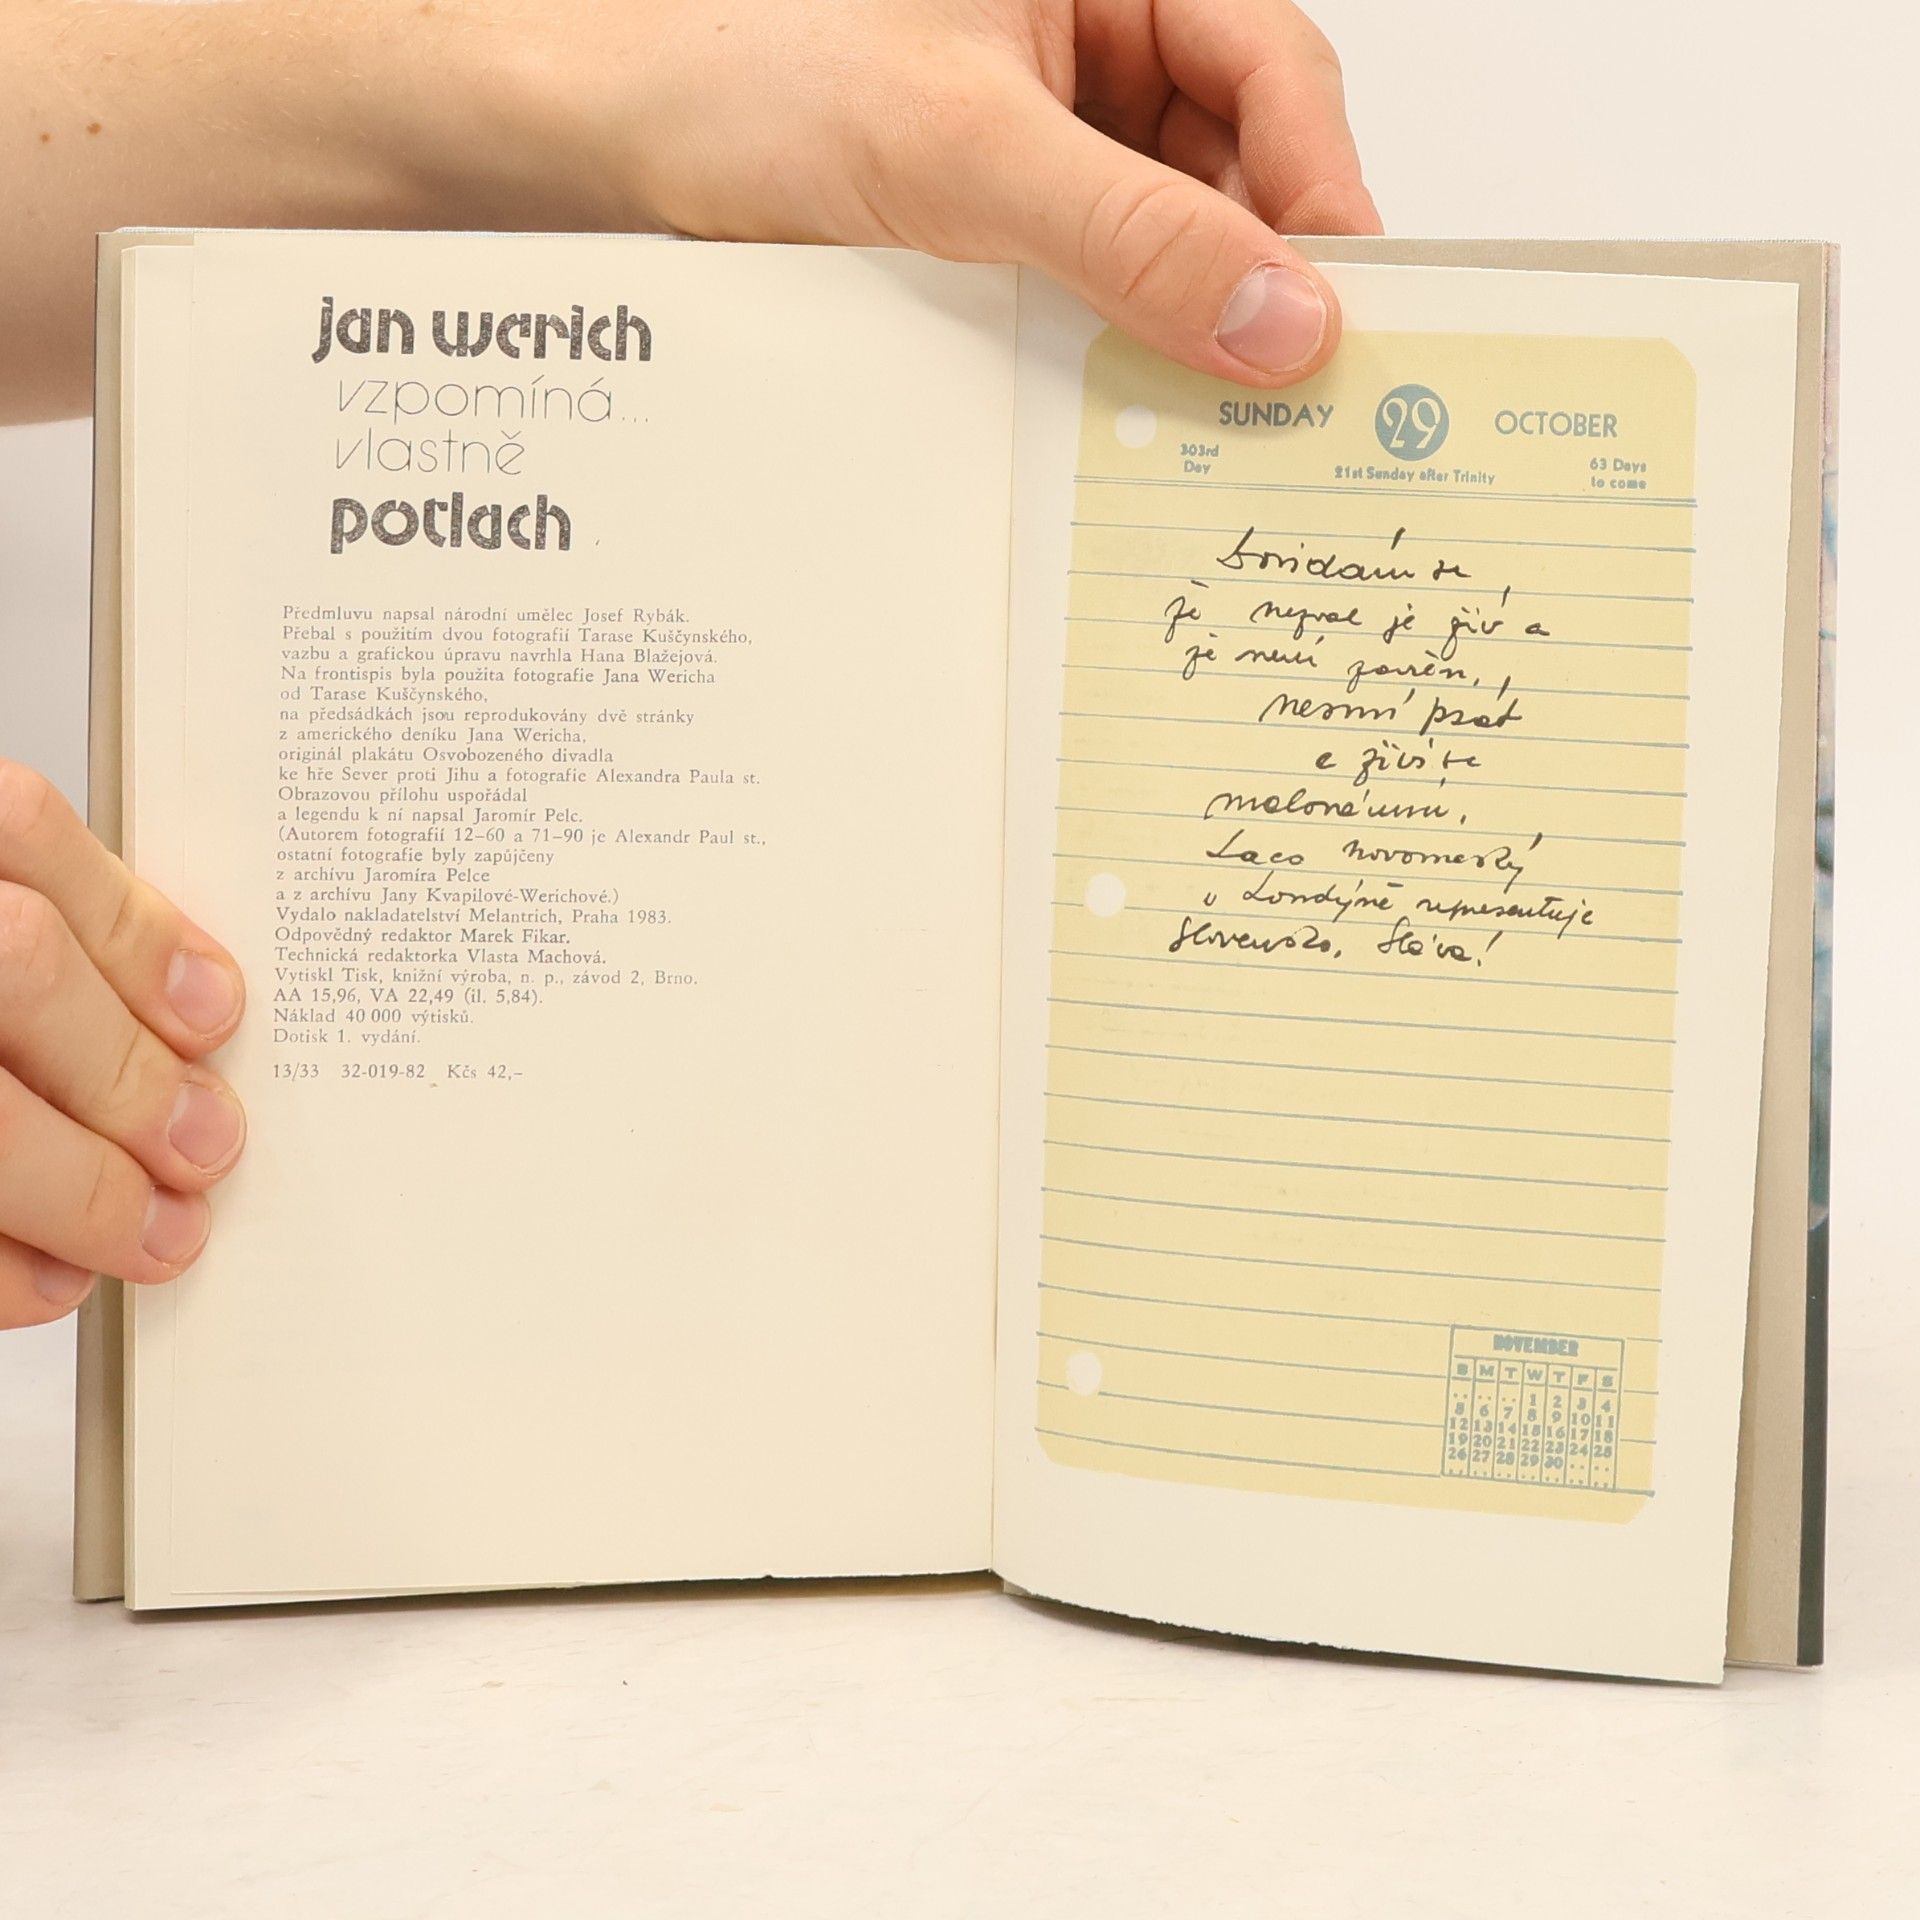 jan werich
vzpomíná...
vlastně
potlach
Předmluvu napsal národní umělec Josef Rybák.
Přebal s použitím dvou fotografií Tarase Kuščynského,
vazbu a grafickou úpravu navrhla Hana Blažejová.
Na frontispis byla použita fotografie Jana Wericha
od Tarase Kuščynského,
na předsádkách jsou reprodukovány dvě stránky
z amerického deníku Jana Wericha,
originál plakátu Osvobozeného divadla
ke hře Sever proti Jihu a fotografie Alexandra Paula st.
Obrazovou přílohu uspořádal
a legendu k ní napsal Jaromír Pelc.
(Autorem fotografií 12–60 a 71–90 je Alexandr Paul st.,
ostatní fotografie byly zapůjčeny
z archívu Jaromíra Pelce
a z archívu Jany Kvapilové-Werichové.)
Vydalo nakladatelství Melantrich, Praha 1983.
Odpovědný redaktor Marek Fikar.
Technická redaktorka Vlasta Machová.
Vytiskl Tisk, knižní výroba, n. p., závod 2, Brno.
AA 15,96, VA 22,49 (il. 5,84).
Náklad 40 000 výtisků.
Dotisk 1. vydání.
13/33 32-019-82 Kčs 42,–
SUNDAY 29 OCTOBER
303rd Day 21st Sunday after Trinity 63 Days to come
Dovídám se,
že Nezval je živ a
že není zavřen,
nesmí psát
a živí se
malováním.
Laco Novomeský
v Londýně representuje
Slovensko. Sláva!
NOVEMBER
S M T W T F S
.. .. .. 1 2 3 4
5 6 7 8 9 10 11
12 13 14 15 16 17 18
19 20 21 22 23 24 25
26 27 28 29 30 .. ..
.. .. .. .. .. .. ..